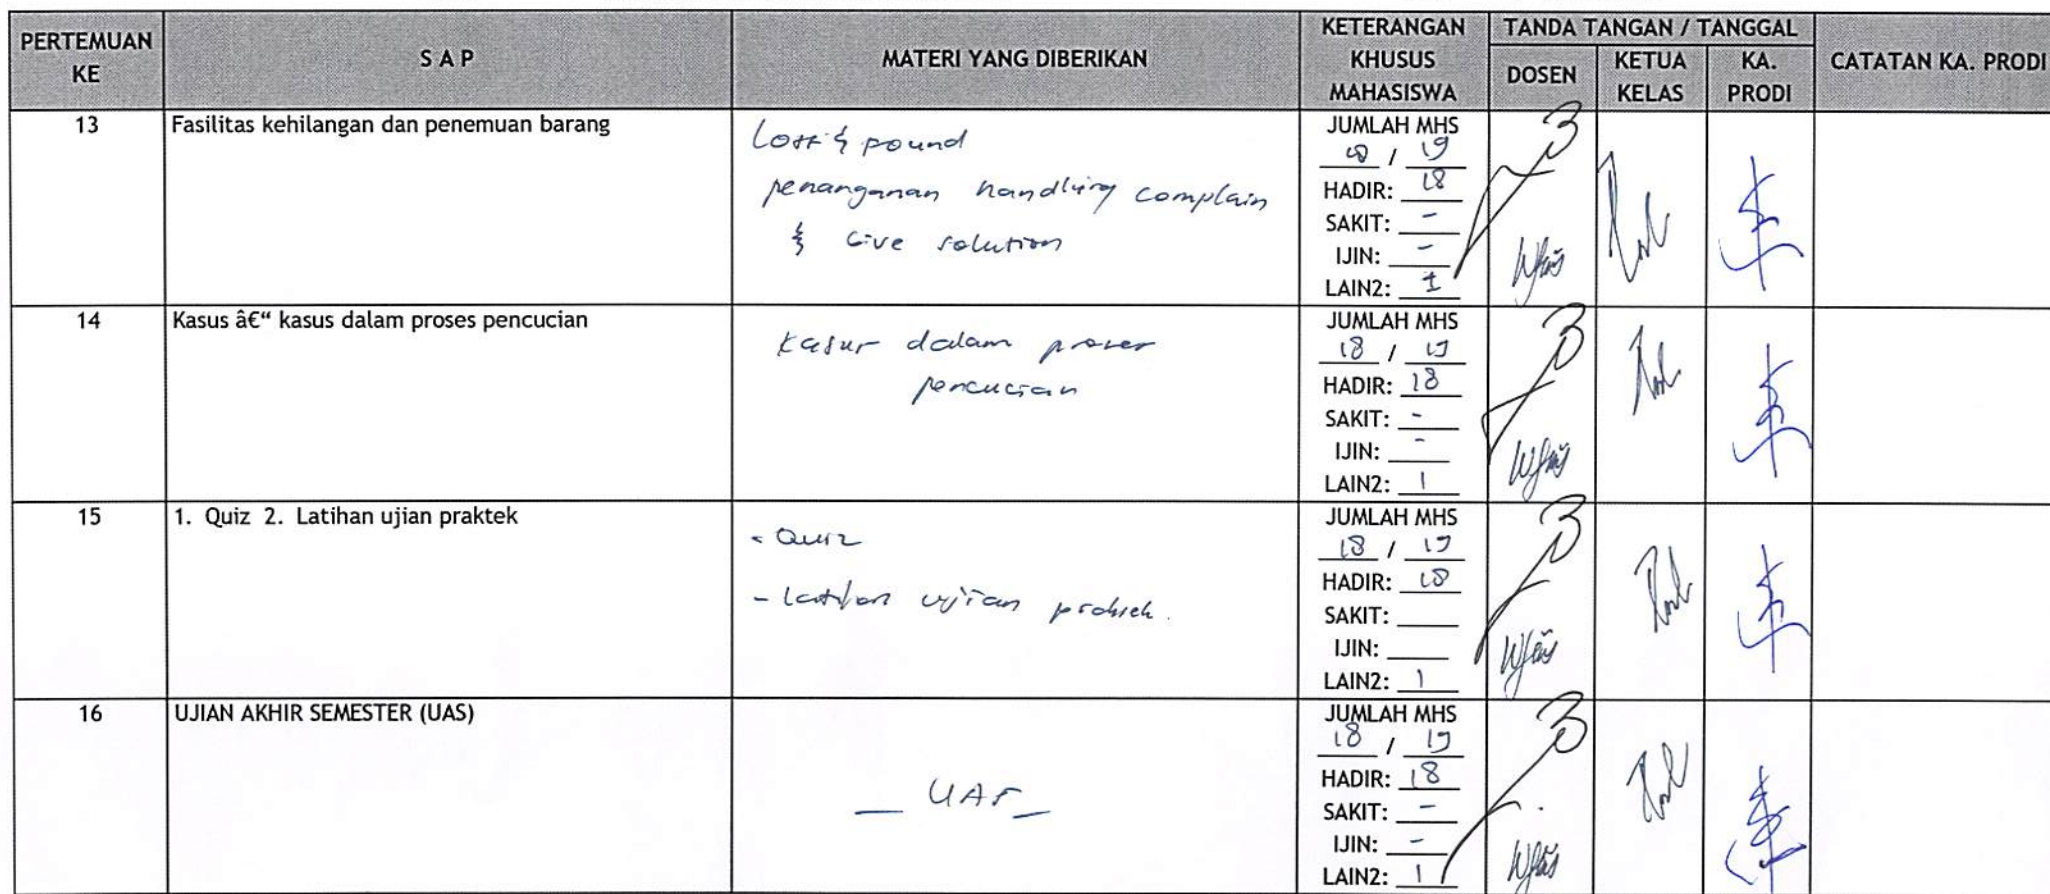 PERTEMUAN KE | S A P | MATERI YANG DIBERIKAN | KETERANGAN KHUSUS MAHASISWA | TANDA TANGAN / TANGGAL | CATATAN KA. PRODI
DOSEN | KETUA KELAS | KA. PRODI
13 | Fasilitas kehilangan dan penemuan barang
Lost & pound
penanganan handling complain
& Give solution
JUMLAH MHS
18 / 19
HADIR: 18
SAKIT: -
IJIN: -
LAIN2: 1
14 | Kasus â€“ kasus dalam proses pencucian
Kasus dalam proses
pencucian
JUMLAH MHS
18 / 19
HADIR: 18
SAKIT: -
IJIN: -
LAIN2: 1
15 | 1. Quiz 2. Latihan ujian praktek
- Quiz
- Latihan ujian praktek.
JUMLAH MHS
18 / 19
HADIR: 18
SAKIT:
IJIN:
LAIN2: 1
16 | UJIAN AKHIR SEMESTER (UAS)
— UAS —
JUMLAH MHS
18 / 19
HADIR: 18
SAKIT: -
IJIN: -
LAIN2: 1